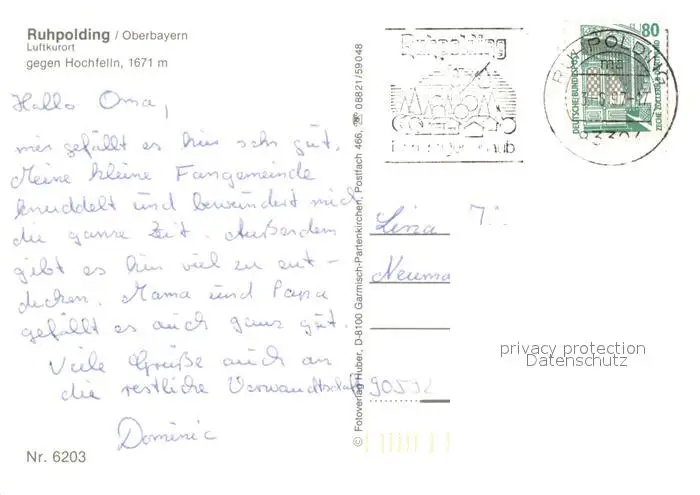 Ruhpolding / Oberbayern
Luftkurort
gegen Hochfelln, 1671 m
Hallo Oma,
mir gefällt es hier sehr gut.
Meine kleine Fangemeinde
knuddelt und bewundert mich
die ganze Zeit. Außerdem
gibt es hier viel zu ent-
decken. Mama und Papa
gefällt es auch ganz gut.
Viele Grüße auch an
die restliche Verwandtschaft
Dominic
Nr. 6203
© Fotoverlag Huber, D-8100 Garmisch-Partenkirchen, Postfach 466, ☎ 08821/59048
Ruhpolding
80
DEUTSCHE BUNDESPOST
RUHPOLDING
Lina
Neuma
privacy protection
Datenschutz